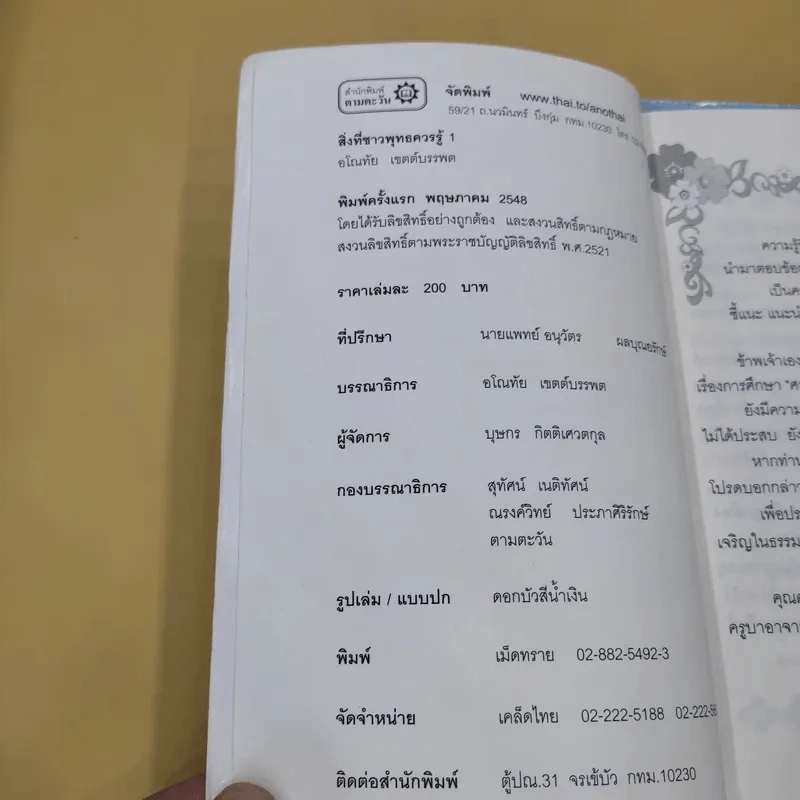 สำนักพิมพ์
ตามตะวัน
จัดพิมพ์ www.thai.to/anothai
59/21 ถ.นวมินทร์ บึงกุ่ม กทม.10230 โทร.
สิ่งที่ชาวพุทธควรรู้ 1
อโณทัย เขตต์บรรพต
พิมพ์ครั้งแรก พฤษภาคม 2548
โดยได้รับลิขสิทธิ์อย่างถูกต้อง และสงวนสิทธิ์ตามกฎหมาย
สงวนลิขสิทธิ์ตามพระราชบัญญัติลิขสิทธิ์ พ.ศ.2521
ราคาเล่มละ 200 บาท
ที่ปรึกษา นายแพทย์ อนุวัตร ผลบุณยรักษ์
บรรณาธิการ อโณทัย เขตต์บรรพต
ผู้จัดการ บุษกร กิตติเศวตกุล
กองบรรณาธิการ สุทัศน์ เนติทัศน์
ณรงค์วิทย์ ประภาศิริรักษ์
ตามตะวัน
รูปเล่ม / แบบปก ดอกบัวสีน้ำเงิน
พิมพ์ เม็ดทราย 02-882-5492-3
จัดจำหน่าย เคล็ดไทย 02-222-5188 02-222-56
ติดต่อสำนักพิมพ์ ตู้ปณ.31 จรเข้บัว กทม.10230
ความรู้
นำมาตอบข้อ
เป็น
ชี้แนะ แนะนำ
ข้าพเจ้าเอง
เรื่องการศึกษา
ยังมีความ
ไม่ได้ประสบ ยัง
หากท่าน
โปรดบอกกล่าว
เพื่อ
เจริญในธรรม
คุณ
ครูบาอาจา